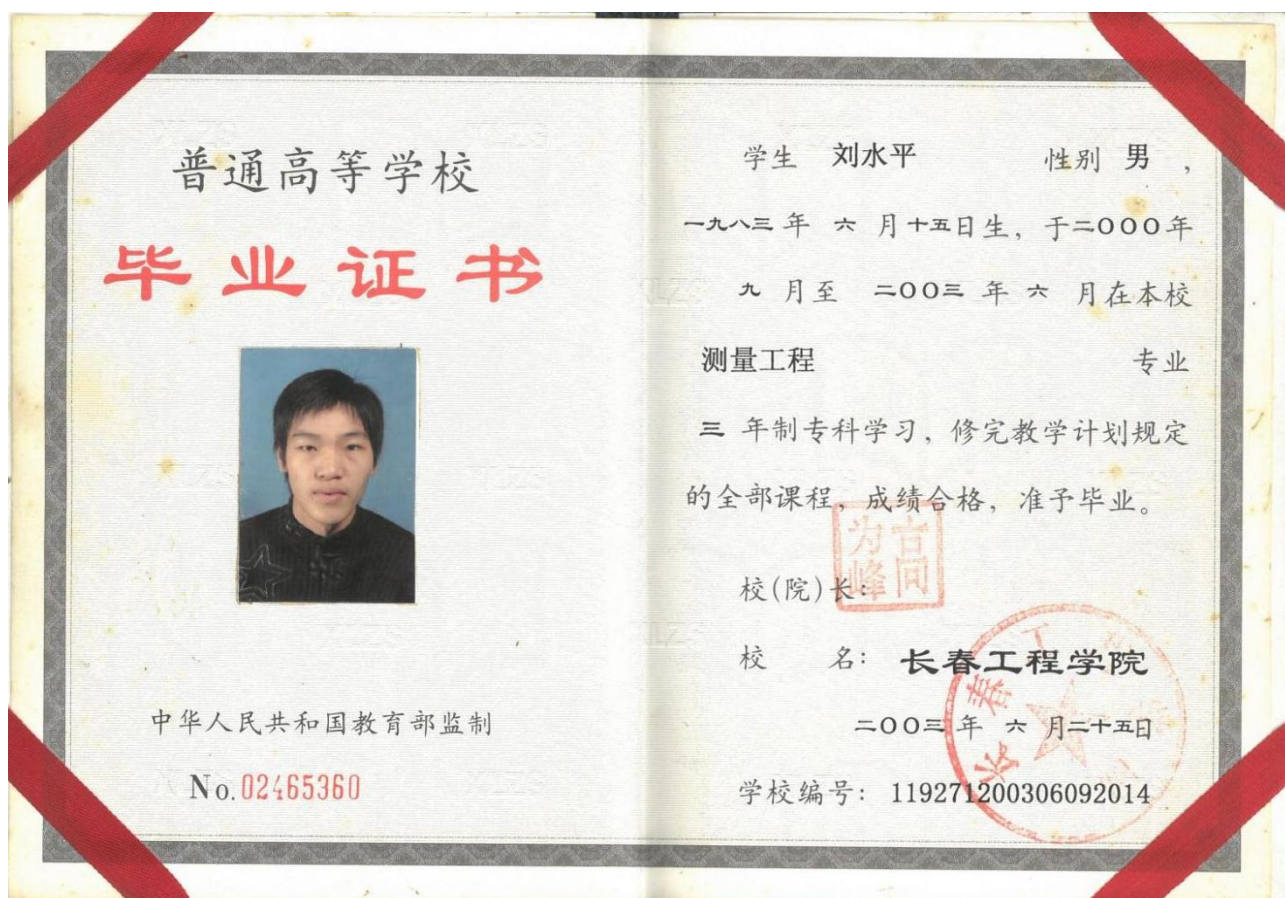 普通高等学校
毕业证书
中华人民共和国教育部监制
No.02465360
学生 刘水平 性别 男,
一九八三年 六 月十五日生, 于二〇〇〇年
九 月至 二〇〇三 年 六 月在本校
测量工程 专业
三 年制专科学习, 修完教学计划规定
的全部课程, 成绩合格, 准予毕业。
校(院)长:
校 名: 长春工程学院
二〇〇三年 六 月二十五日
学校编号: 119271200306092014